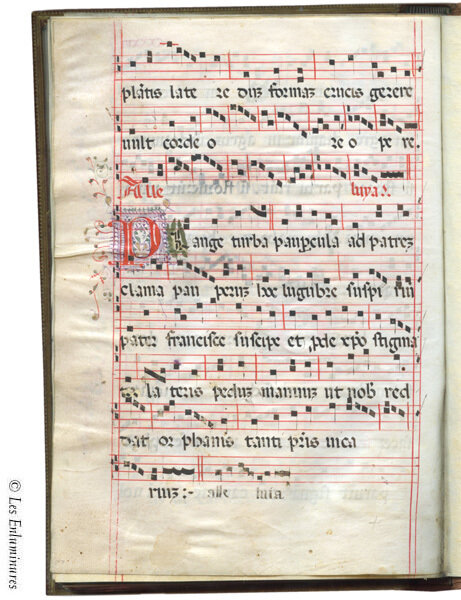 plātis late re duȝ formaȝ crucis gerere
uult corde o re o pe re.
Alle luya:.
Plange turba paupcula ad patreȝ
clama pau perūȝ hoc lugubre suspi riū
pater francisce suscipe et p̄de xp̄o stigma
ta la teris pedūȝ manuuȝ ut nob̄ red
dat or phanis tanti pr̄is uica
riuȝ:- alle luia
© Les Enluminures